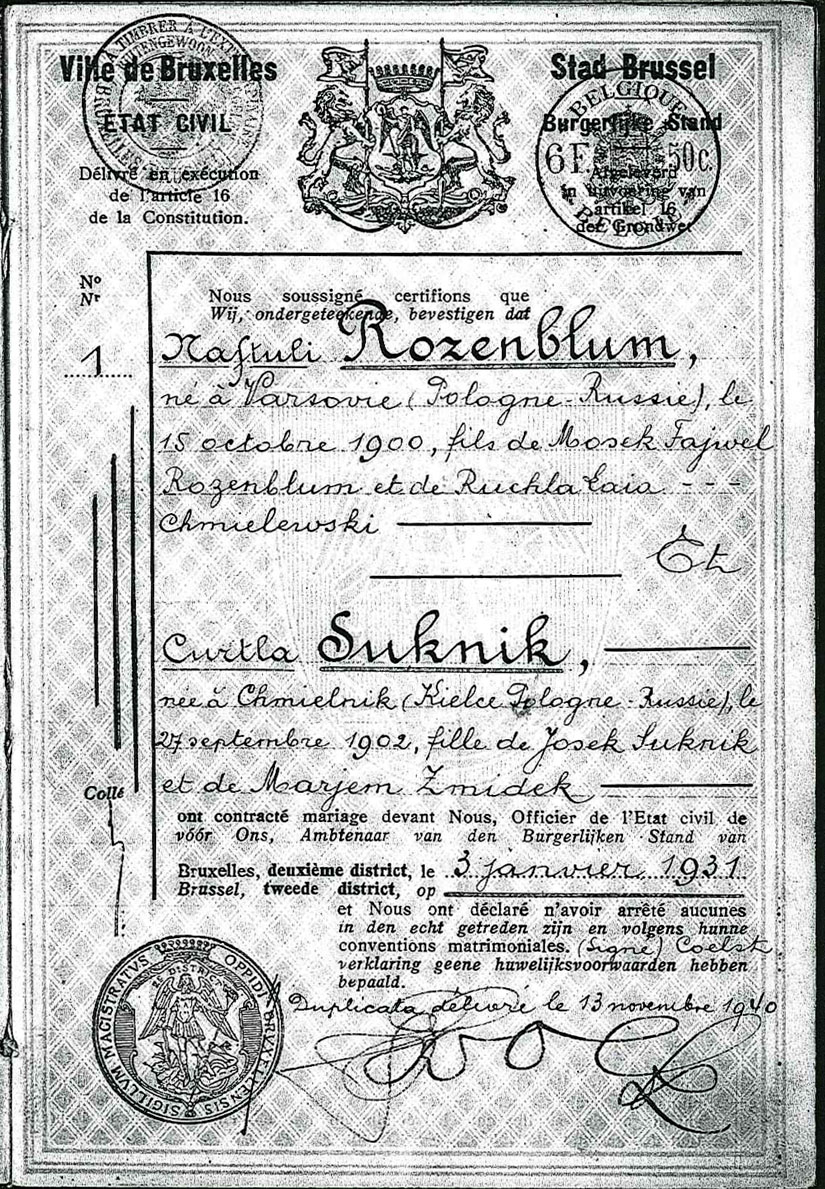 Ville de Bruxelles
ETAT CIVIL
Délivré en exécution
de l'article 16
de la Constitution.
Stad Brussel
Burgerlijke Stand
Afgeleverd
in uitvoering van
artikel 16
der Grondwet
TIMBRER À L'EXTRAORDINAIRE
BELGIQUE
6F. 50c.
BELGIË
Nº
Nr
1
Nous soussigné certifions que
Wij, ondergeteekende, bevestigen dat
Naftuli Rozenblum,
né à Varsovie (Pologne-Russie), le
15 octobre 1900, fils de Mosek Fajwel
Rozenblum et de Ruchla Łaia - - -
Chmielewski
Et
Curtla Suknik,
née à Chmielnik (Kielce Pologne-Russie), le
27 septembre 1902, fille de Josek Suknik
et de Marjem Zmidek
Collé
ont contracté mariage devant Nous, Officier de l'Etat civil de
vóór Ons, Ambtenaar van den Burgerlijken Stand van
Bruxelles, deuxième district, le 3 janvier 1931
Brussel, tweede district, op
et Nous ont déclaré n'avoir arrêté aucunes
in den echt getreden zijn en volgens hunne
conventions matrimoniales. (Signé) Coelst
verklaring geene huwelijksvoorwaarden hebben
bepaald.
Duplicata délivré le 13 novembre 1940
SIGILLVM MAGISTRATVS OPPIDI BRVXELLENSIS
2E DISTRICT